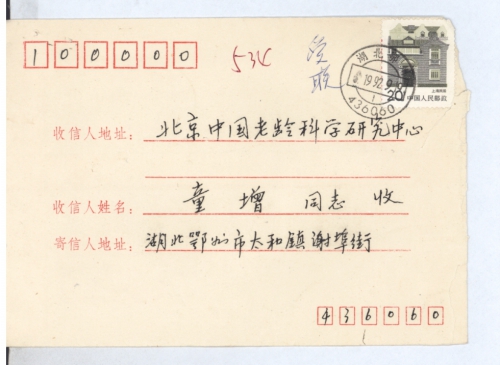 100000
534
湖北
1992.9.
436060
20
中国人民邮政
上海民居
收信人地址：北京中国老龄科学研究中心
收信人姓名：童增 同志 收
寄信人地址：湖北鄂州市太和镇谢埠街
436060